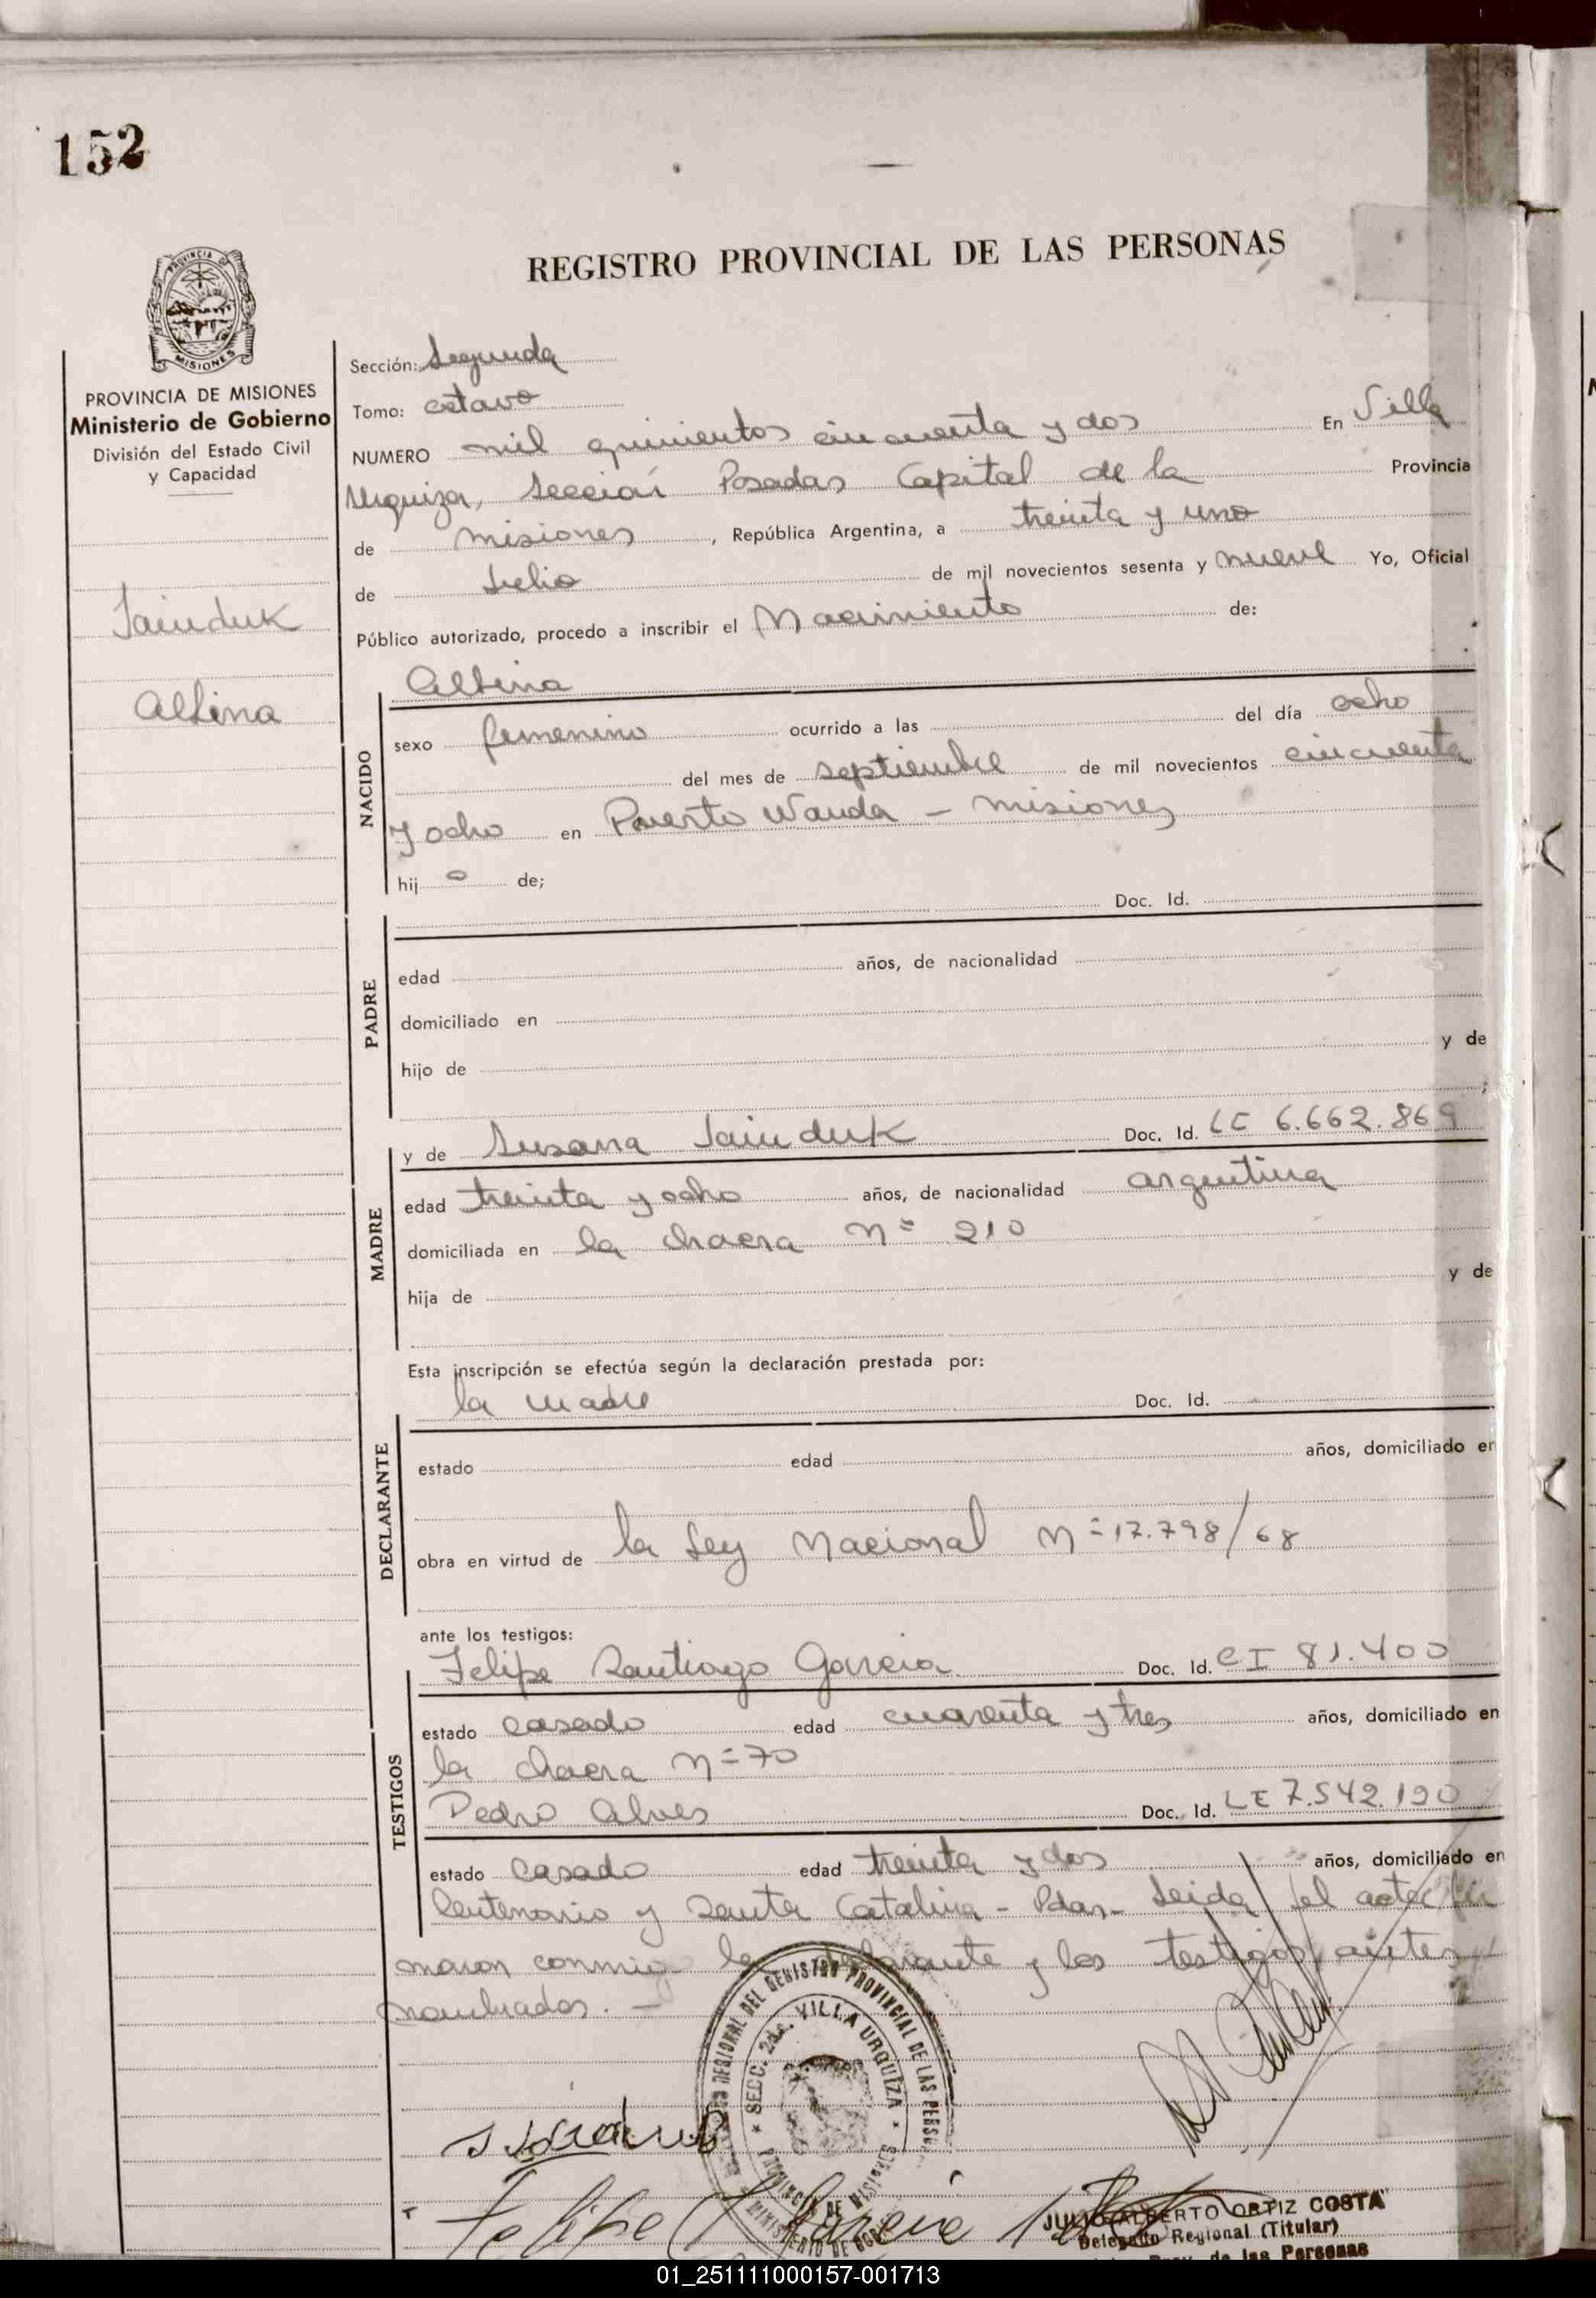 152
REGISTRO PROVINCIAL DE LAS PERSONAS
PROVINCIA DE MISIONES
Ministerio de Gobierno
División del Estado Civil
y Capacidad
Sainduk
Albina
Sección: Segunda
Tomo: octavo
NUMERO mil quinientos cincuenta y dos En Villa
Urquiza, Sección Posadas Capital de la Provincia
de Misiones, República Argentina, a treinta y uno
de Julio de mil novecientos sesenta y nueve Yo, Oficial
Público autorizado, procedo a inscribir el Nacimiento de:
Albina
NACIDO
sexo femenino ocurrido a las del día ocho
del mes de septiembre de mil novecientos cincuenta
y ocho en Puerto Wanda - Misiones
hij o de;
Doc. Id.
PADRE
edad años, de nacionalidad
domiciliado en
hijo de y de
;
y de Susana Sainduk Doc. Id. LC 6.662.869
MADRE
edad treinta y ocho años, de nacionalidad argentina
domiciliada en la chacra N= 210
hija de y de
Esta inscripción se efectúa según la declaración prestada por:
la madre Doc. Id.
DECLARANTE
estado edad años, domiciliado en
obra en virtud de la Ley Nacional N= 17.798/68
ante los testigos:
Felipe Santiago Garcia Doc. Id. CI 81.400
TESTIGOS
estado casado edad cuarenta y tres años, domiciliado en
la chacra N= 70
Pedro Alves Doc. Id. LE 7.542.190
estado casado edad treinta y dos años, domiciliado en
Centenario y Santa Catalina - Pdas- Leida el acta fir
maron conmigo la declarante y los testigos antes
nombrados. -
REGIONAL DEL REGISTRO PROVINCIAL DE LAS PERS
SECC. 2da. VILLA URQUIZA
PROVINCIA DE MISIONES
Felipe Garcia
JULIO ALBERTO ORTIZ COSTA
Delegado Regional (Titular)
Prov. de las Personas
01_251111000157-001713